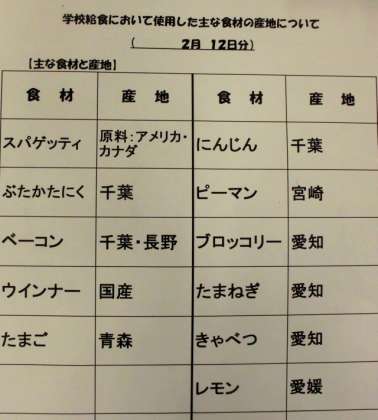 学校給食において使用した主な食材の産地について
( 2月 12日分)
【主な食材と産地】
食 材 産 地 食 材 産 地
スパゲッティ 原料:アメリカ・カナダ にんじん 千葉
ぶたかたにく 千葉 ピーマン 宮崎
ベーコン 千葉・長野 ブロッコリー 愛知
ウインナー 国産 たまねぎ 愛知
たまご 青森 きゃべつ 愛知
レモン 愛媛